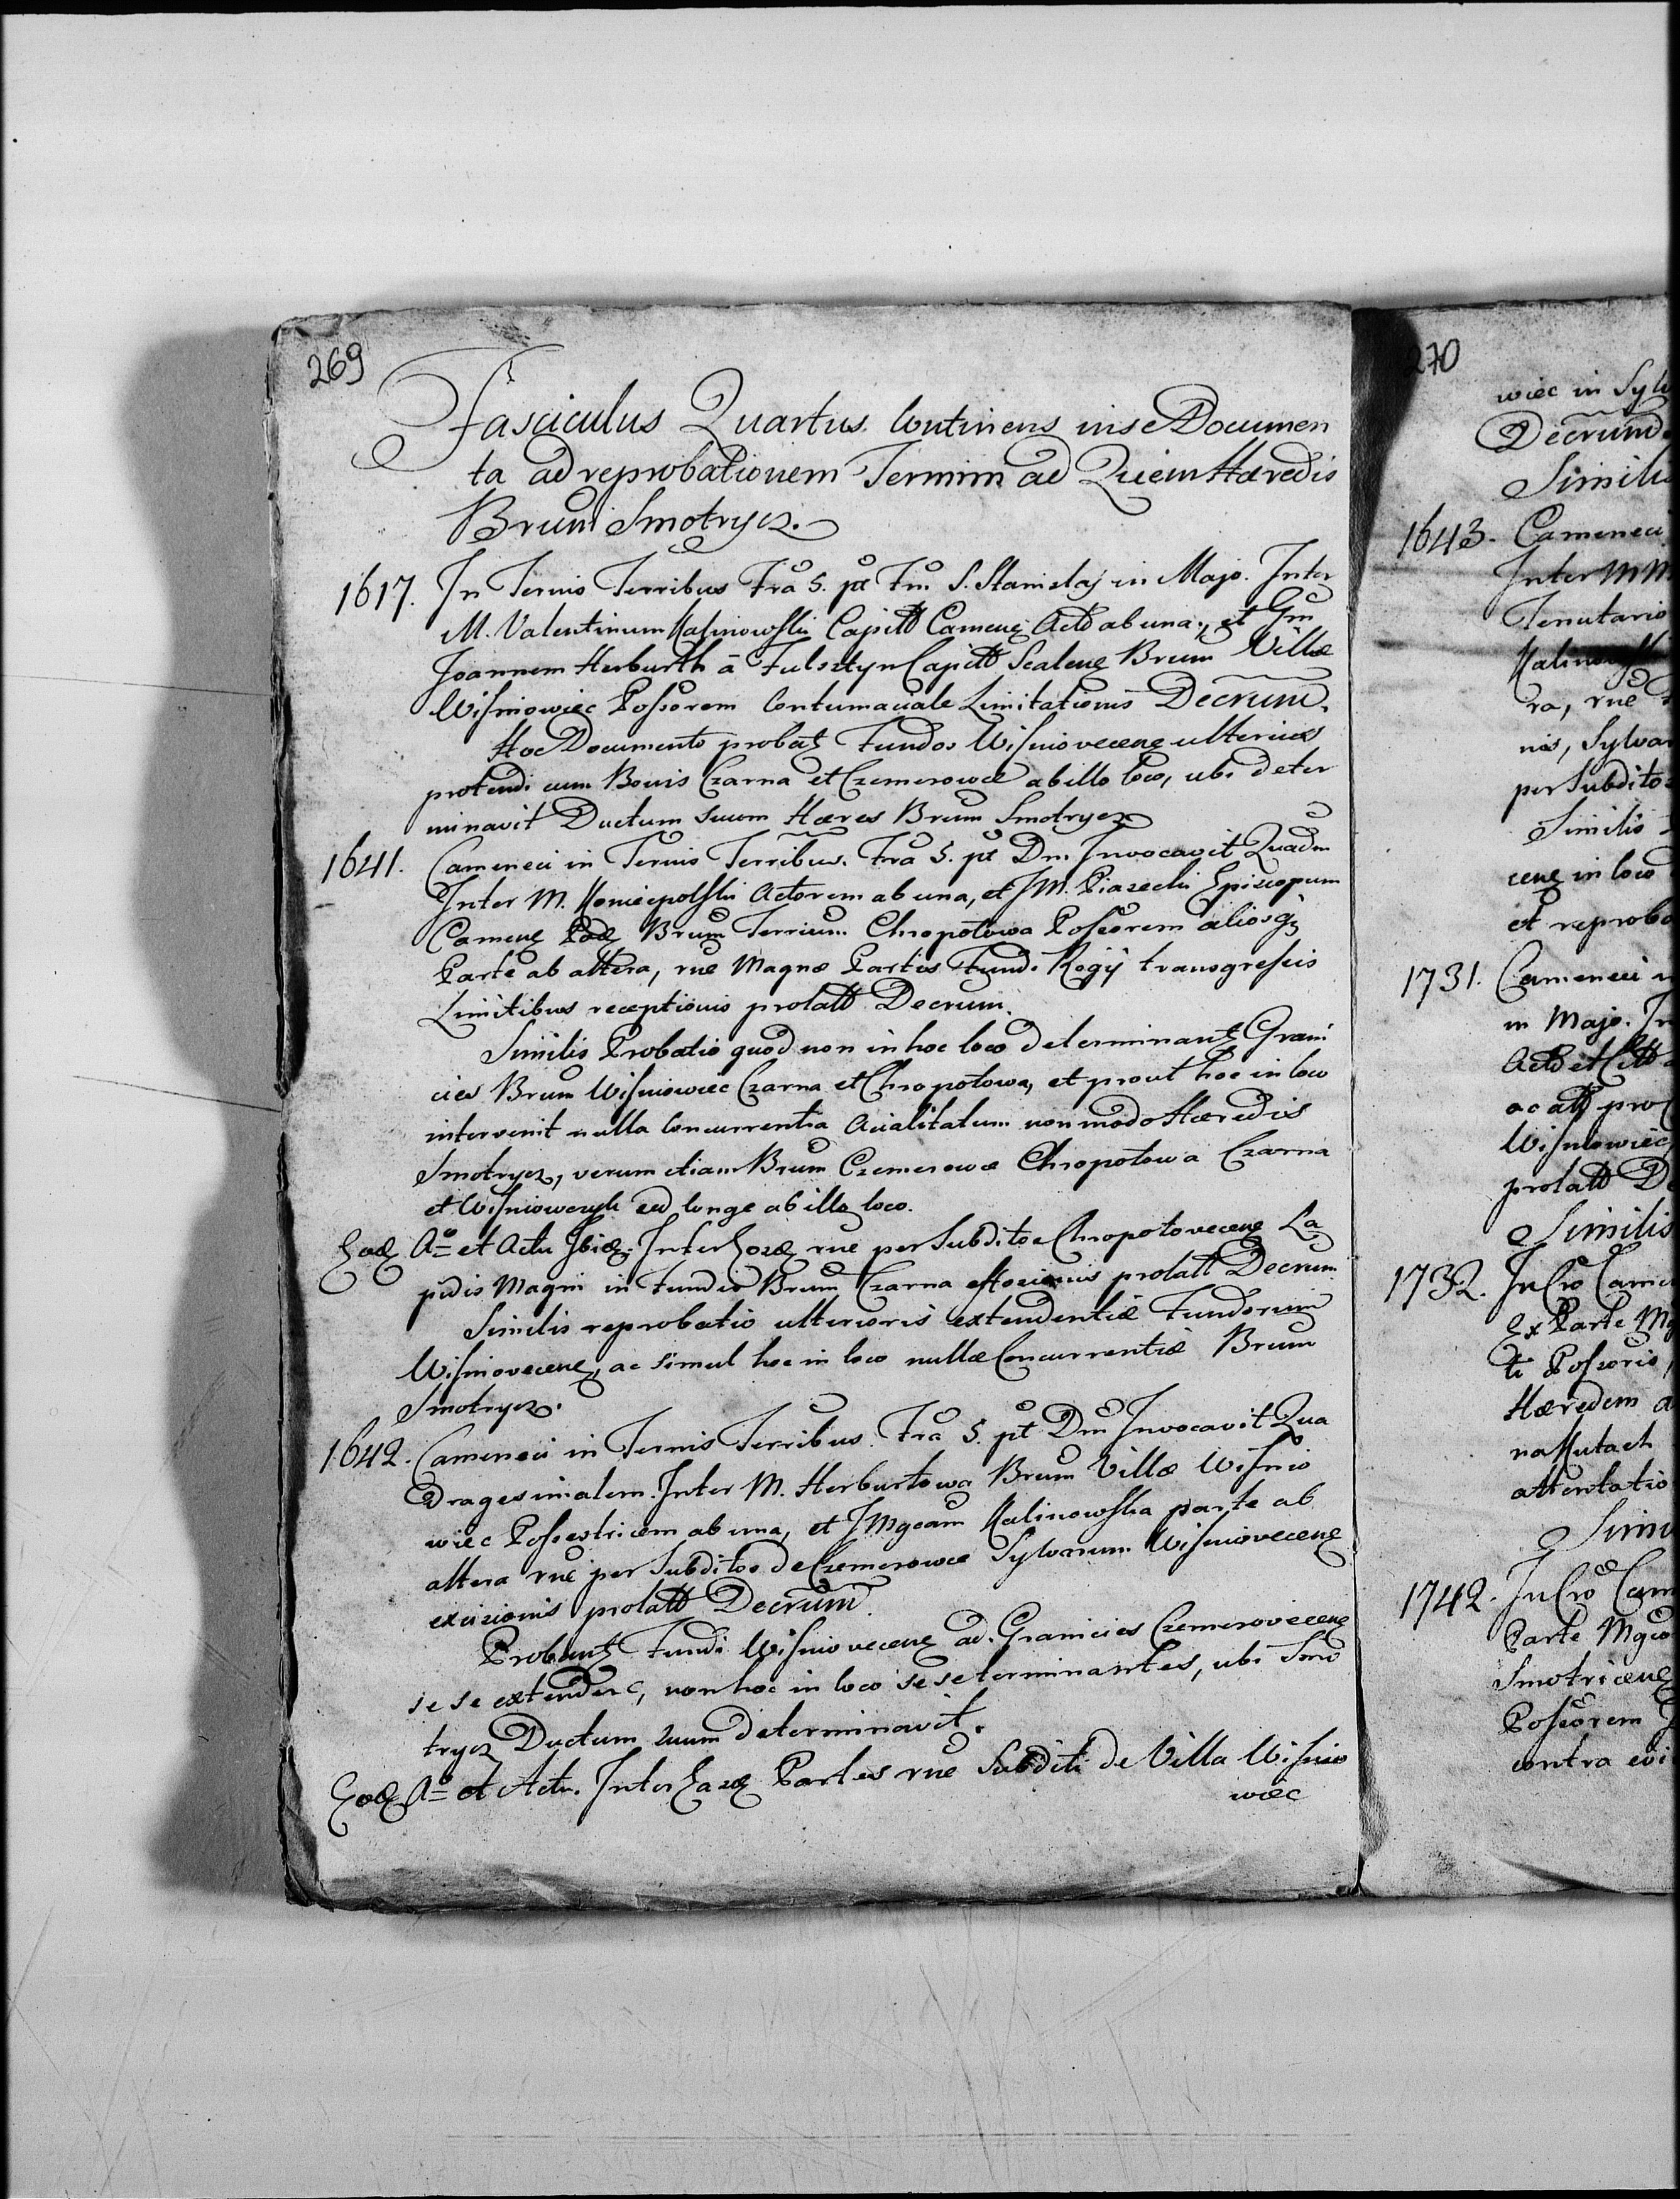 269
Fasciculus Quartus Continens in se Documen
ta ad reprobationem Termini ad Quem Hæredis
Brum Smotrycz.
1617. In Ternis Terribus Fra 5. pt Fm S. Stanislaj in Majo. Inter
M. Valentinum Kalinowski Capitt Camene Actt ab una, et Gm
Joannem Herburth à Fulsztyn Capitt Scalene Brum Villæ
Wisniowiec Possorem Contumaciale Limitationis Decrum.
Hoc Documento probatz Fundos Wisniovecene ulterius
protendi cum Bonis Czarna et Czemerowce ab illo loco, ubi deter
minavit Ductum suum Hæres Brum Smotrycz
1641. Cameneci in Ternis Terribus. Fra 5. pt Dm. Invocavit Quadm
Inter M. Koniecpolski Actorem ab una, et J M. Piasecki Episcopum
Camene Pod Brum Terrium Chropotowa Possorem aliosqz
Parte ab altera, rne Magnæ Partis Fundi Regij transgressis
Limitibus receptionis prolatt Decrum.
Similis Probatio quod non in hoc loco determinantz Grani
cies Brum Wisniowiec Czarna et Chropotowa, et prout hoc in loco
intervenit nulla Concurrentia Acialitatum non modo Hæredis
Smotrycz, verum etiam Brum Czemerowce Chropotowa Czarna
et Wisniowczyk sed longe ab illo loco.
Eod Ao et Actu Ibid. Inter Eosd rne per Subditos Chropotovecene La
pidis Magni in Fundis Brum Czarna effossionis prolatt Decrum
Similis reprobatio ulterioris extendentiæ Fundorum
Wisniovecene, ac simul hoc in loco nullæ Concurrentiæ Brum
Smotrycz.
1642. Cameneci in Ternis Terribus Fra 5. pt Dm Invocavit Qua
dragesimalem. Inter M. Herburtowa Brum Villæ Wisnio
wiec Possestricem ab una, et J Mgcam Kalinowska parte ab
altera rne per Subditos de Czemerowce Sylvarum Wisniovecene
excisionis prolatt Decrum
Probantz Fundi Wisniovecene ad Granicies Czemerovecene
se se extendere, non hoc in loco se se terminantes, ubi Smo
trycz Ductum suum determinavit.
Eod Ao et Actu. Inter Easd Partes rne Subditi de Villa Wisnio
wiec
270
wiec in Sylv
Decrum.
Similis
1643. Cameneci
Inter MM
Tenutario
Kalinowsk
ra, rne
nis, Sylvar
per Subditos
Similis
cene in loco
et reproba
1731. Cameneci
in Majo. In
Actt et Citt
ac att pro
Wisniowiec
prolatt De
Similis
1732. In Cro Came
Ex Parte Mg
ti Possoris,
Hæredem
na Kutach
attentatio
Simi
1742. In Cro Cam
Parte Mgco
Smotricene
Possorem
contra evi